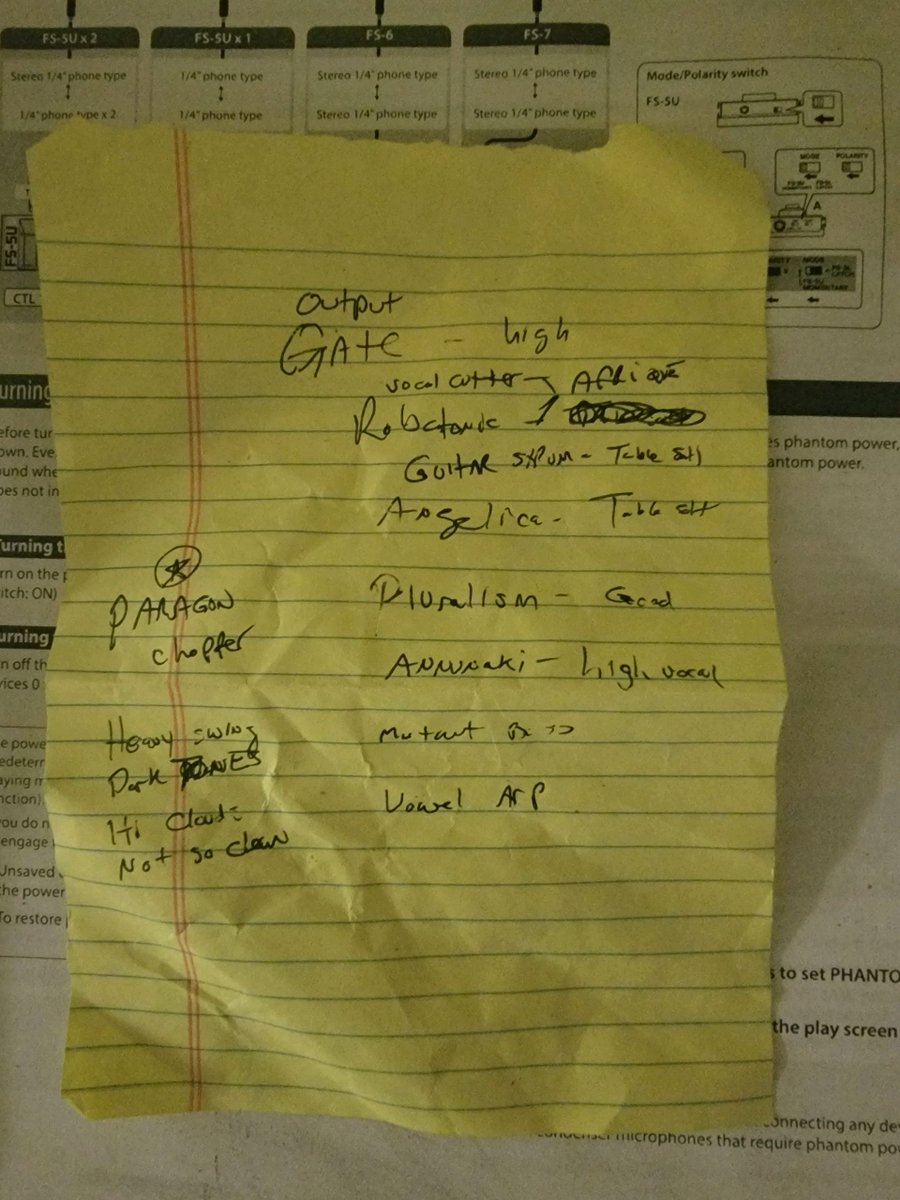 FS-5U x 2
FS-5U x 1
FS-6
FS-7
Stereo 1/4" phone type
1/4" phone type
Stereo 1/4" phone type
Stereo 1/4" phone type
1/4" phone type x 2
1/4" phone type
Stereo 1/4" phone type
Stereo 1/4" phone type
Mode/Polarity switch
FS-5U
MODE POLARITY
A
MODE
FS-5U
CTL
output
GATE - high
vocal cutter
Robotonic
GUITAR
Angelica -
PARAGON
chopper
Pluralism - Good
ANUNAKI - high vocal
Heavy swing
Dark TONES
Mutant
Hi
Not so clean
Vowel Arp
urning
efore tur
own. Eve
ound whe
oes not in
es phantom power,
antom power.
urning t
rn on the p
itch: ON)
urning
n off th
vices 0
e powe
edeterm
aying m
nction)
you do n
engage
Unsaved
the power
To restore
s to set PHANTO
the play screen
onnecting any dev
condenser microphones that require phantom po